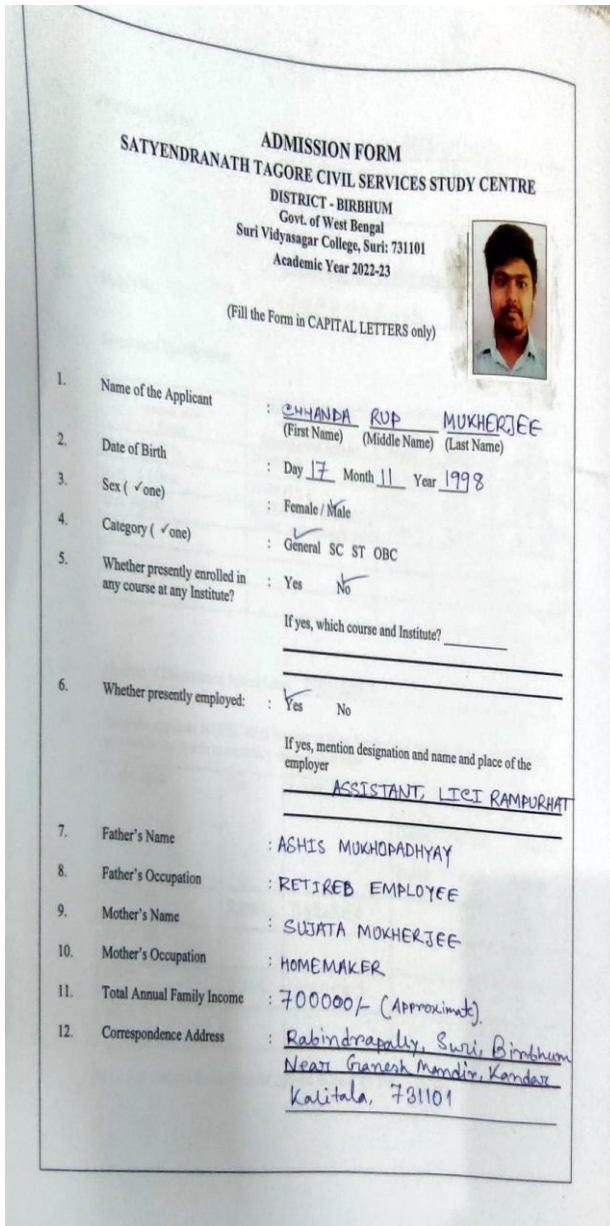 ADMISSION FORM
SATYENDRANATH TAGORE CIVIL SERVICES STUDY CENTRE
DISTRICT - BIRBHUM
Govt. of West Bengal
Suri Vidyasagar College, Suri: 731101
Academic Year 2022-23
(Fill the Form in CAPITAL LETTERS only)
1. Name of the Applicant : CHHANDA RUP MUKHERJEE
(First Name) (Middle Name) (Last Name)
2. Date of Birth : Day 17 Month 11 Year 1998
3. Sex ( ✓one) : Female / Male
4. Category ( ✓one) : General SC ST OBC
5. Whether presently enrolled in : Yes No
any course at any Institute?
If yes, which course and Institute?
6. Whether presently employed: : Yes No
If yes, mention designation and name and place of the
employer
ASSISTANT, LICI RAMPURHAT
7. Father's Name : ASHIS MUKHOPADHYAY
8. Father's Occupation : RETIRED EMPLOYEE
9. Mother's Name : SUJATA MUKHERJEE
10. Mother's Occupation : HOMEMAKER
11. Total Annual Family Income : 700000/- (Approximate).
12. Correspondence Address : Rabindrapally, Suri, Birbhum
Near Ganesh Mandir, Kandar
Kalitala, 731101